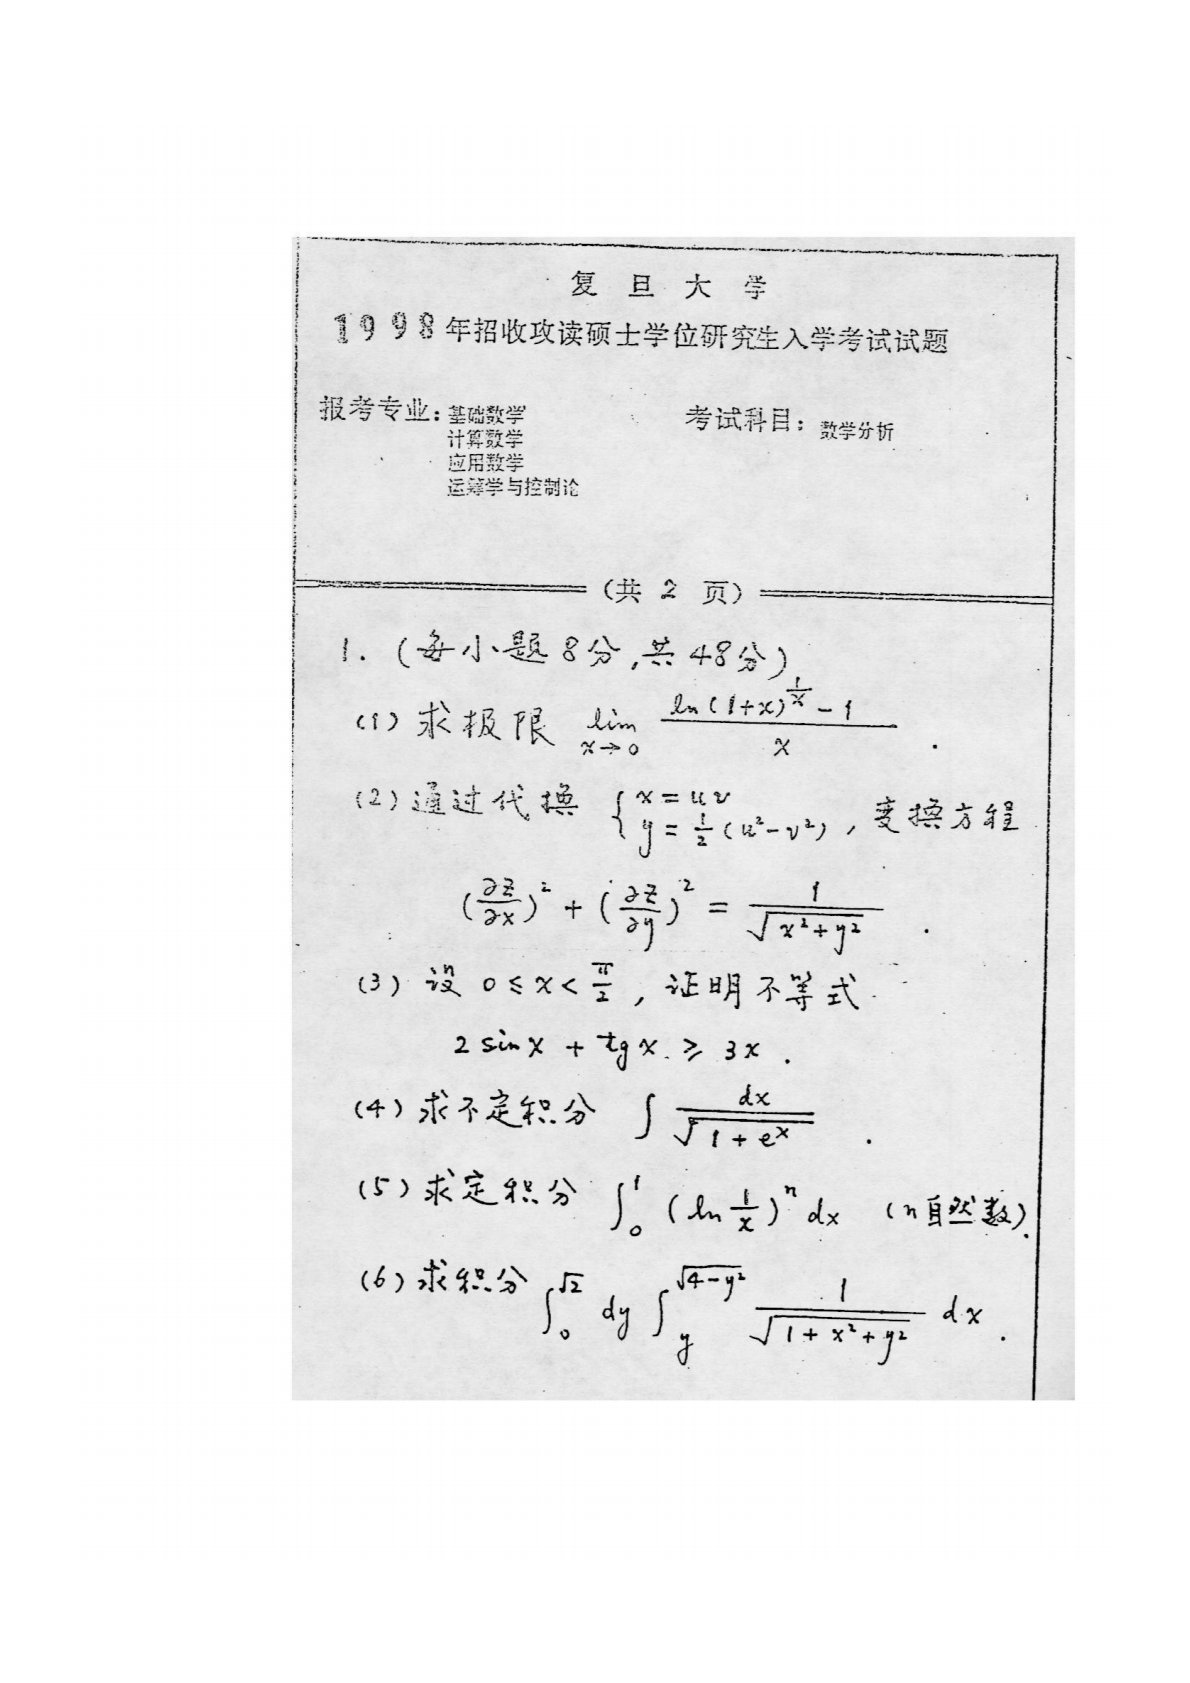 复旦大学
1998年招收攻读硕士学位研究生入学考试试题
报考专业：基础数学 考试科目：数学分析
计算数学
应用数学
运筹学与控制论
（共 2 页）
1.（每小题8分,共48分）
(1) 求极限 lim_{x→0} (ln(1+x)^{1/x} - 1)/x .
(2) 通过代换 { x = uv
y = 1/2 (u²-v²) , 变换方程
(∂z/∂x)² + (∂z/∂y)² = 1/√(x²+y²) .
(3) 设 0 ≤ x < π/2 , 证明不等式
2 sin x + tg x ≥ 3x .
(4) 求不定积分 ∫ dx/√(1+e^x) .
(5) 求定积分 ∫_0^1 (ln 1/x)^n dx (n自然数).
(6) 求积分 ∫_0^{√2} dy ∫_y^{√(4-y²)} 1/√(1+x²+y²) dx .